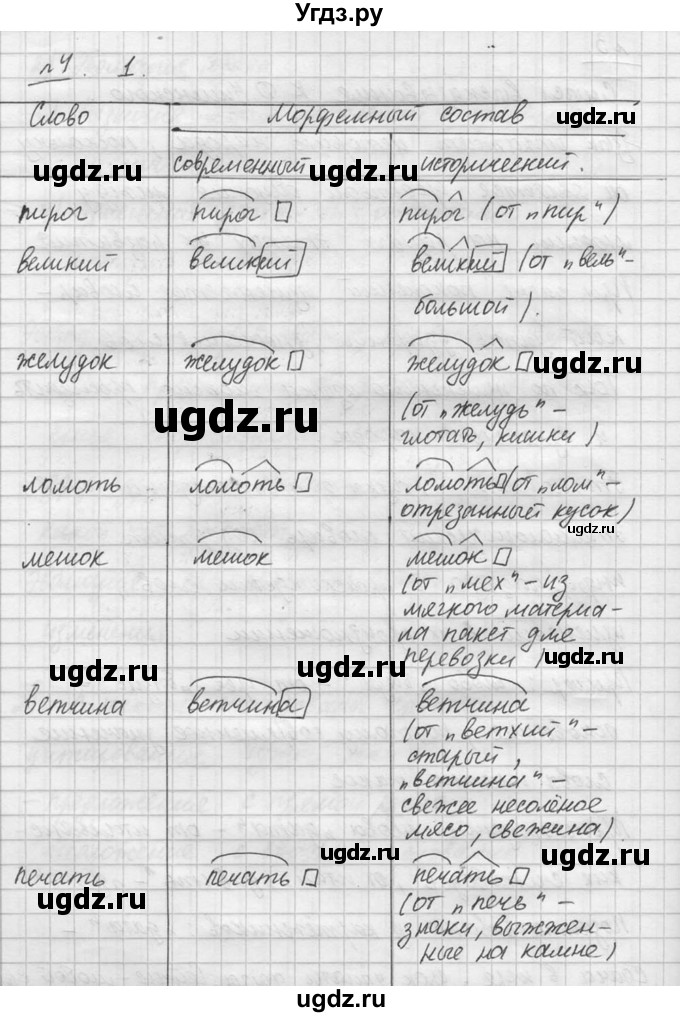 Угдз.ру
№4. 1.
Слово Морфемный состав
ugdz.ru
ugdz.ru современный исторический.
пирог пирог пирог (от „пир")
великий великий великий (от „вель"-
большой).
желудок желудок желудок ugdz.ru
ugdz.ru (от „желудь" -
глотать, кишки)
ломоть ломоть ломоть (от „лом" -
отрезанный кусок)
ugdz.ru
мешок мешок мешок
(от „мех" - из
мягкого материа-
ла пакет для
перевозки) ugdz.ru
ugdz.ru
ветчина ветчина ветчина
(от „ветхий" -
старый,
„ветчина" -
свежее несолёное
мясо, свежина)
ugdz.ru
печать печать печать
ugdz.ru (от „печь" -
знаки, выжжен-
ные на камне)
ugdz.ru
ugdz.ru